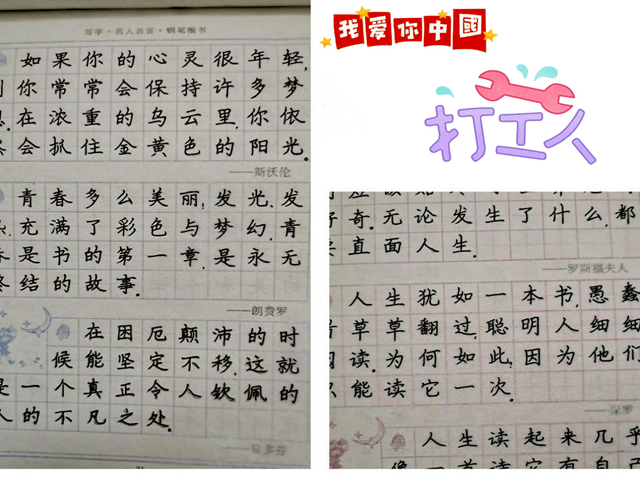 写字·名人名言·钢笔楷书
如果你的心灵很年轻,
你常常会保持许多梦
在浓重的乌云里,你依
会抓住金黄色的阳光.
——斯沃伦
青春多么美丽,发光,发
充满了彩色与梦幻,青
是书的第一章,是永无
终结的故事.
——朗费罗
在困厄颠沛的时
候能坚定不移,这就
是一个真正令人钦佩的
人的不凡之处.
我爱你中國
打工人
好奇.无论发生了什么,都
直面人生.
——罗斯福夫人
人生犹如一本书,愚蠢
者草草翻过,聪明人细细
阅读.为何如此,因为他们
只能读它一次.
人生读起来几乎
像一首诗,它有自己